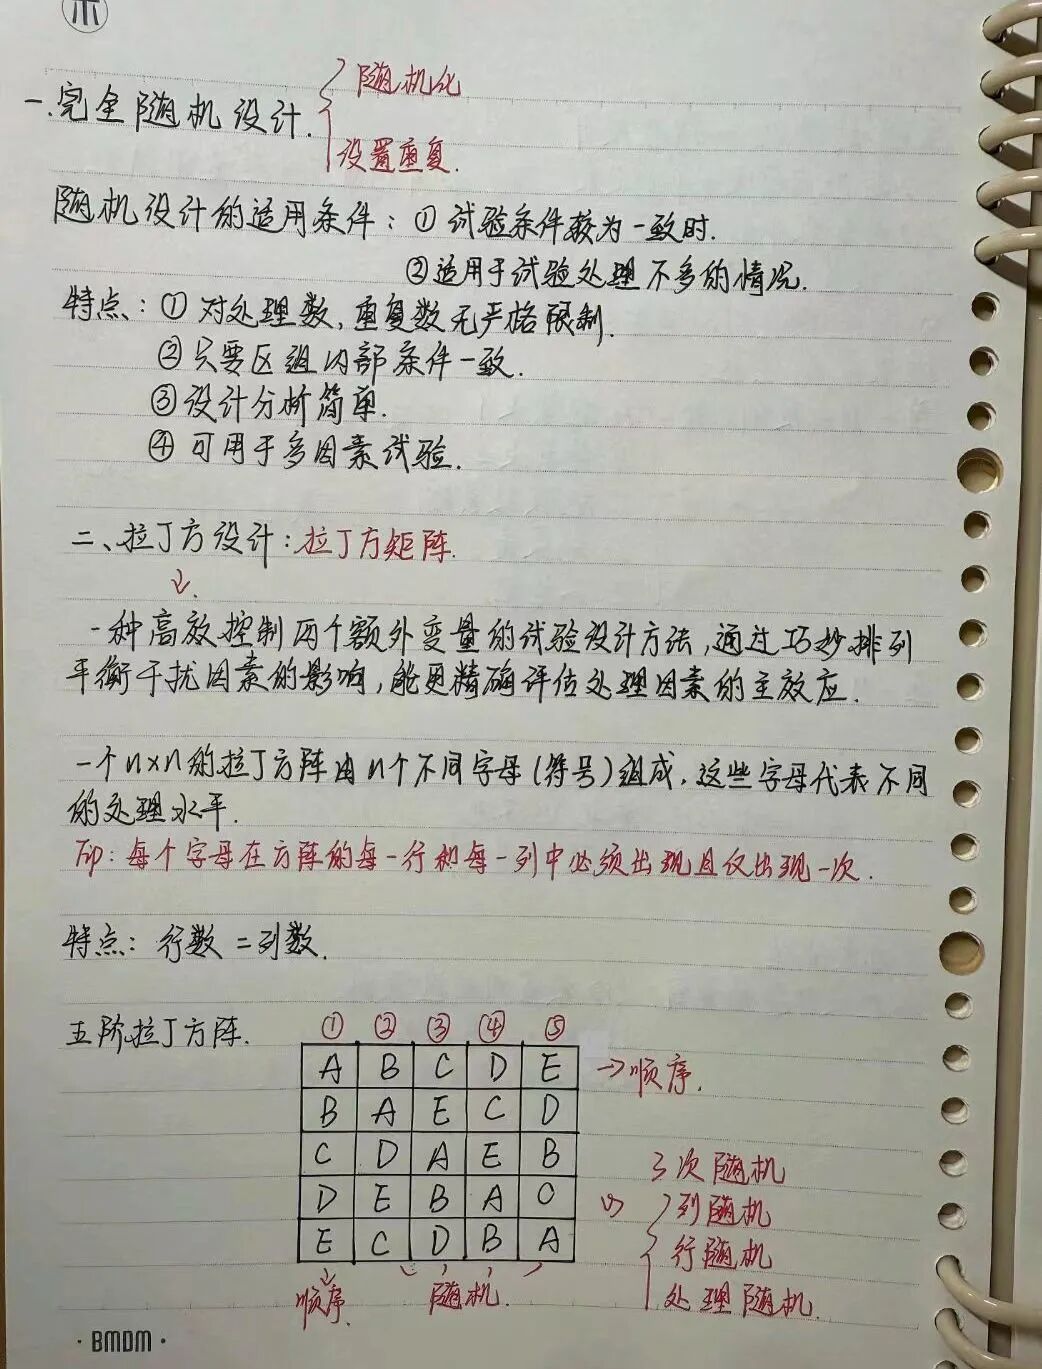 一.完全随机设计. 随机化
设置重复.
随机设计的适用条件：① 试验条件较为一致时.
②适用于试验处理不多的情况.
特点：① 对处理数,重复数无严格限制.
② 只要区组内部条件一致.
③ 设计分析简单.
④ 可用于多因素试验.
二、拉丁方设计：拉丁方矩阵.
一种高效控制两个额外变量的试验设计方法,通过巧妙排列
平衡干扰因素的影响,能更精确评估处理因素的主效应.
一个n×n的拉丁方阵由n个不同字母(符号)组成,这些字母代表不同
的处理水平.
即：每个字母在方阵的每一行和每一列中必须出现且仅出现一次.
特点：行数=列数.
五阶拉丁方阵. ① ② ③ ④ ⑤
A B C D E →顺序.
B A E C D
C D A E B 3次随机
D E B A C 列随机
E C D B A 行随机
顺序. 随机. 处理随机.
·BMDM·